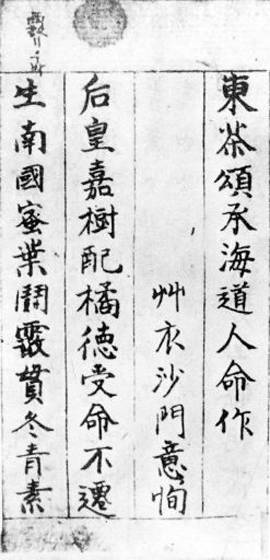 東茶頌承海道人命作
艸衣沙門意恂
后皇嘉樹配橘德受命不遷
生南國蜜葉鬪霰貫冬青素